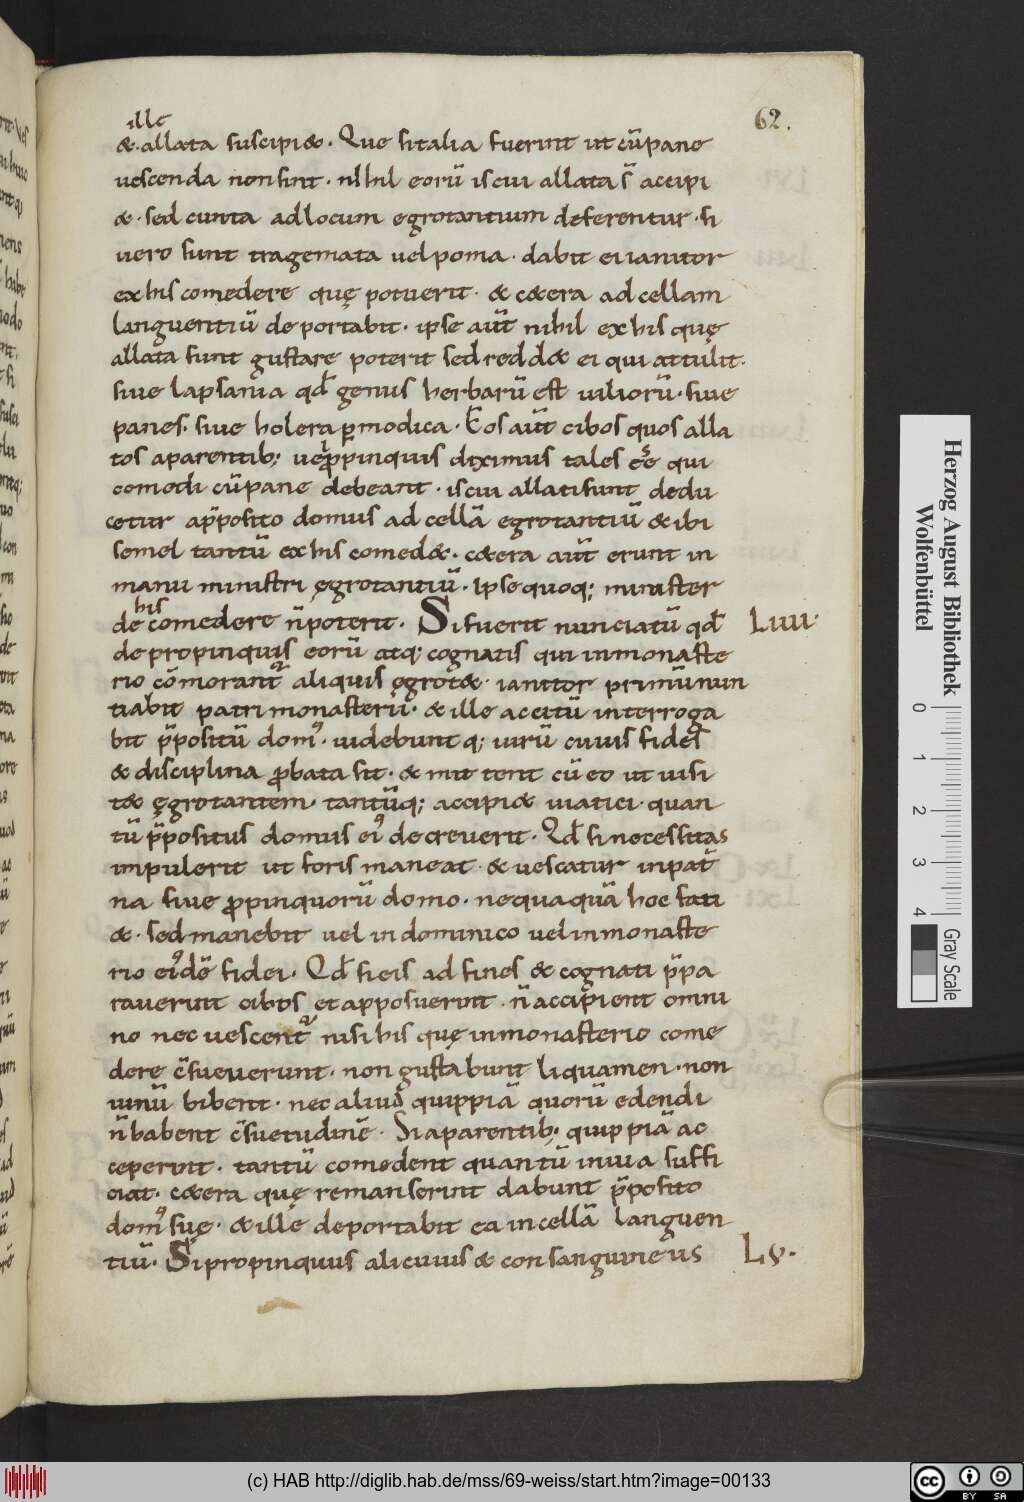 62.
ille
&. allata suscipi&. Que si talia fuerint ut cū pane
uescenda non sint. nihil eorū is cui allata s̄ accipi
&. sed cuncta ad locum egrotantium deferentur. si
uero sunt tragemata uel poma. dabit ei ianitor
ex his comedere quę potuerit. & c&era ad cellam
languentiū deportabit. ipse aūt nihil ex his quę
allata sunt gustare poterit sed redd& ei qui attulit.
siue lapsania qd̄ genus herbarū est uiliorū. siue
panes. siue holera p̱modica. Eos aūt cibos quos alla
tos a parentib; uel p̱pinquis diximus tales eē qui
comodi cū pane debeant. is cui allati sunt dedu
cetur a p̄posito domus ad cellā egrotantiū & ibi
semel tantū ex his comed&. c&era aūt erunt in
manu ministri ęgrotantiū. Ipse quoq; minister
his
de comedere n̄ poterit. Si fuerit nunciatū qd̄
Liiii.
de propinquis eorū atq; cognatis qui in monaste
rio cōmorant᷒ aliquis ęgrot&. ianitor primū nun
tiabit patri monasterii. & ille accitū interroga
bit p̄positū domꝰ. uidebunt q; uirū cuius fides
& disciplina p̱bata sit. & mittent cū eo ut uisi
t& ęgrotantem. tantūq; accipi& uiatici. quan
tū p̄positus domus eiꝰ decreuerit. Qd̄ si necessitas
impulerit ut foris maneat. & uescatur in pat̄
na siue p̱pinquorū domo. nequaquā hoc fati
&. sed manebit uel in dominico uel in monaste
rio eiꝰdē fidei. Qd̄ si eis adfines & cognati p̄pa
rauerint cibos et apposuerint. n̄ accipient omni
no nec uescent᷒ nisi his quę in monasterio come
dere c̄sueuerunt. non gustabunt liquamen. non
uinū bibent. nec aliud quippiā quorū edendi
n̄ habent c̄suetudinē. Si a parentib; quippiā ac
ceperint. tantū comedent quantū in uia suffi
ciat. c&era quę remanserint dabunt p̄posito
domꝰ suę. & ille deportabit ea in cellā languen
tiū. Si propinquus alicuius & consanguineus
Lv.
Herzog August Bibliothek
Wolfenbüttel
0 1 2 3 4
Gray Scale
(c) HAB http://diglib.hab.de/mss/69-weiss/start.htm?image=00133
cc BY SA